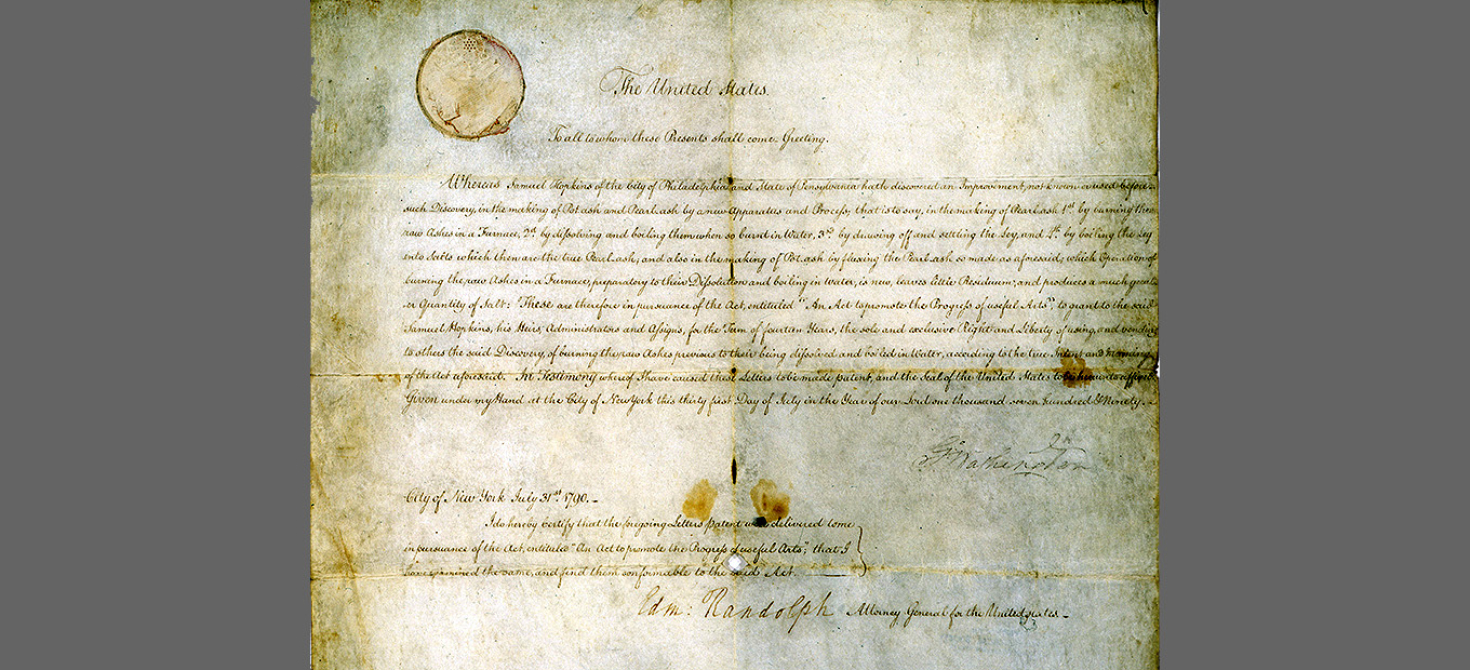 The United States.
To all to whom these Presents shall come. Greeting.
Whereas Samuel Hopkins of the City of Philadelphia and State of Pensylvania hath discovered an Improvement, not known or used before
such Discovery, in the making of Pot ash and Pearl ash by a new Apparatus and Process; that is to say, in the making of Pearl ash 1st. by burning the
raw Ashes in a Furnace, 2d. by dissolving and boiling them when so burnt in Water, 3rd. by drawing off and settling the Ley, and 4th. by boiling the Ley
into Salts which then are the true Pearl ash; and also in the making of Pot ash by fluxing the Pearl ash so made as aforesaid; which Operation of
burning the raw Ashes in a Furnace, preparatory to their Dissolution and boiling in Water, is new, leaves little Residuum; and produces a much great-
er Quantity of Salt: These are therefore in pursuance of the Act, entituled "An Act to promote the Progress of useful Arts", to grant to the said
Samuel Hopkins, his Heirs, Administrators and Assigns, for the Term of fourteen Years, the sole and exclusive Right and Liberty of using, and vending
to others the said Discovery, of burning the raw Ashes previous to their being dissolved and boiled in Water, according to the true Intent and Meaning
of the Act aforesaid. In Testimony whereof I have caused these Letters to be made patent, and the Seal of the United States to be hereunto affixed
Given under my Hand at the City of New York this thirty first Day of July in the Year of our Lord one thousand seven hundred & Ninety.
Go Washington
City of New York July 31st. 1790. –
I do hereby Certify that the foregoing Letters patent were delivered to me
in pursuance of the Act, entituled "An Act to promote the Progress of useful Arts"; that I
have examined the same, and find them conformable to the said Act.
Edm: Randolph Attorney General for the United States. –